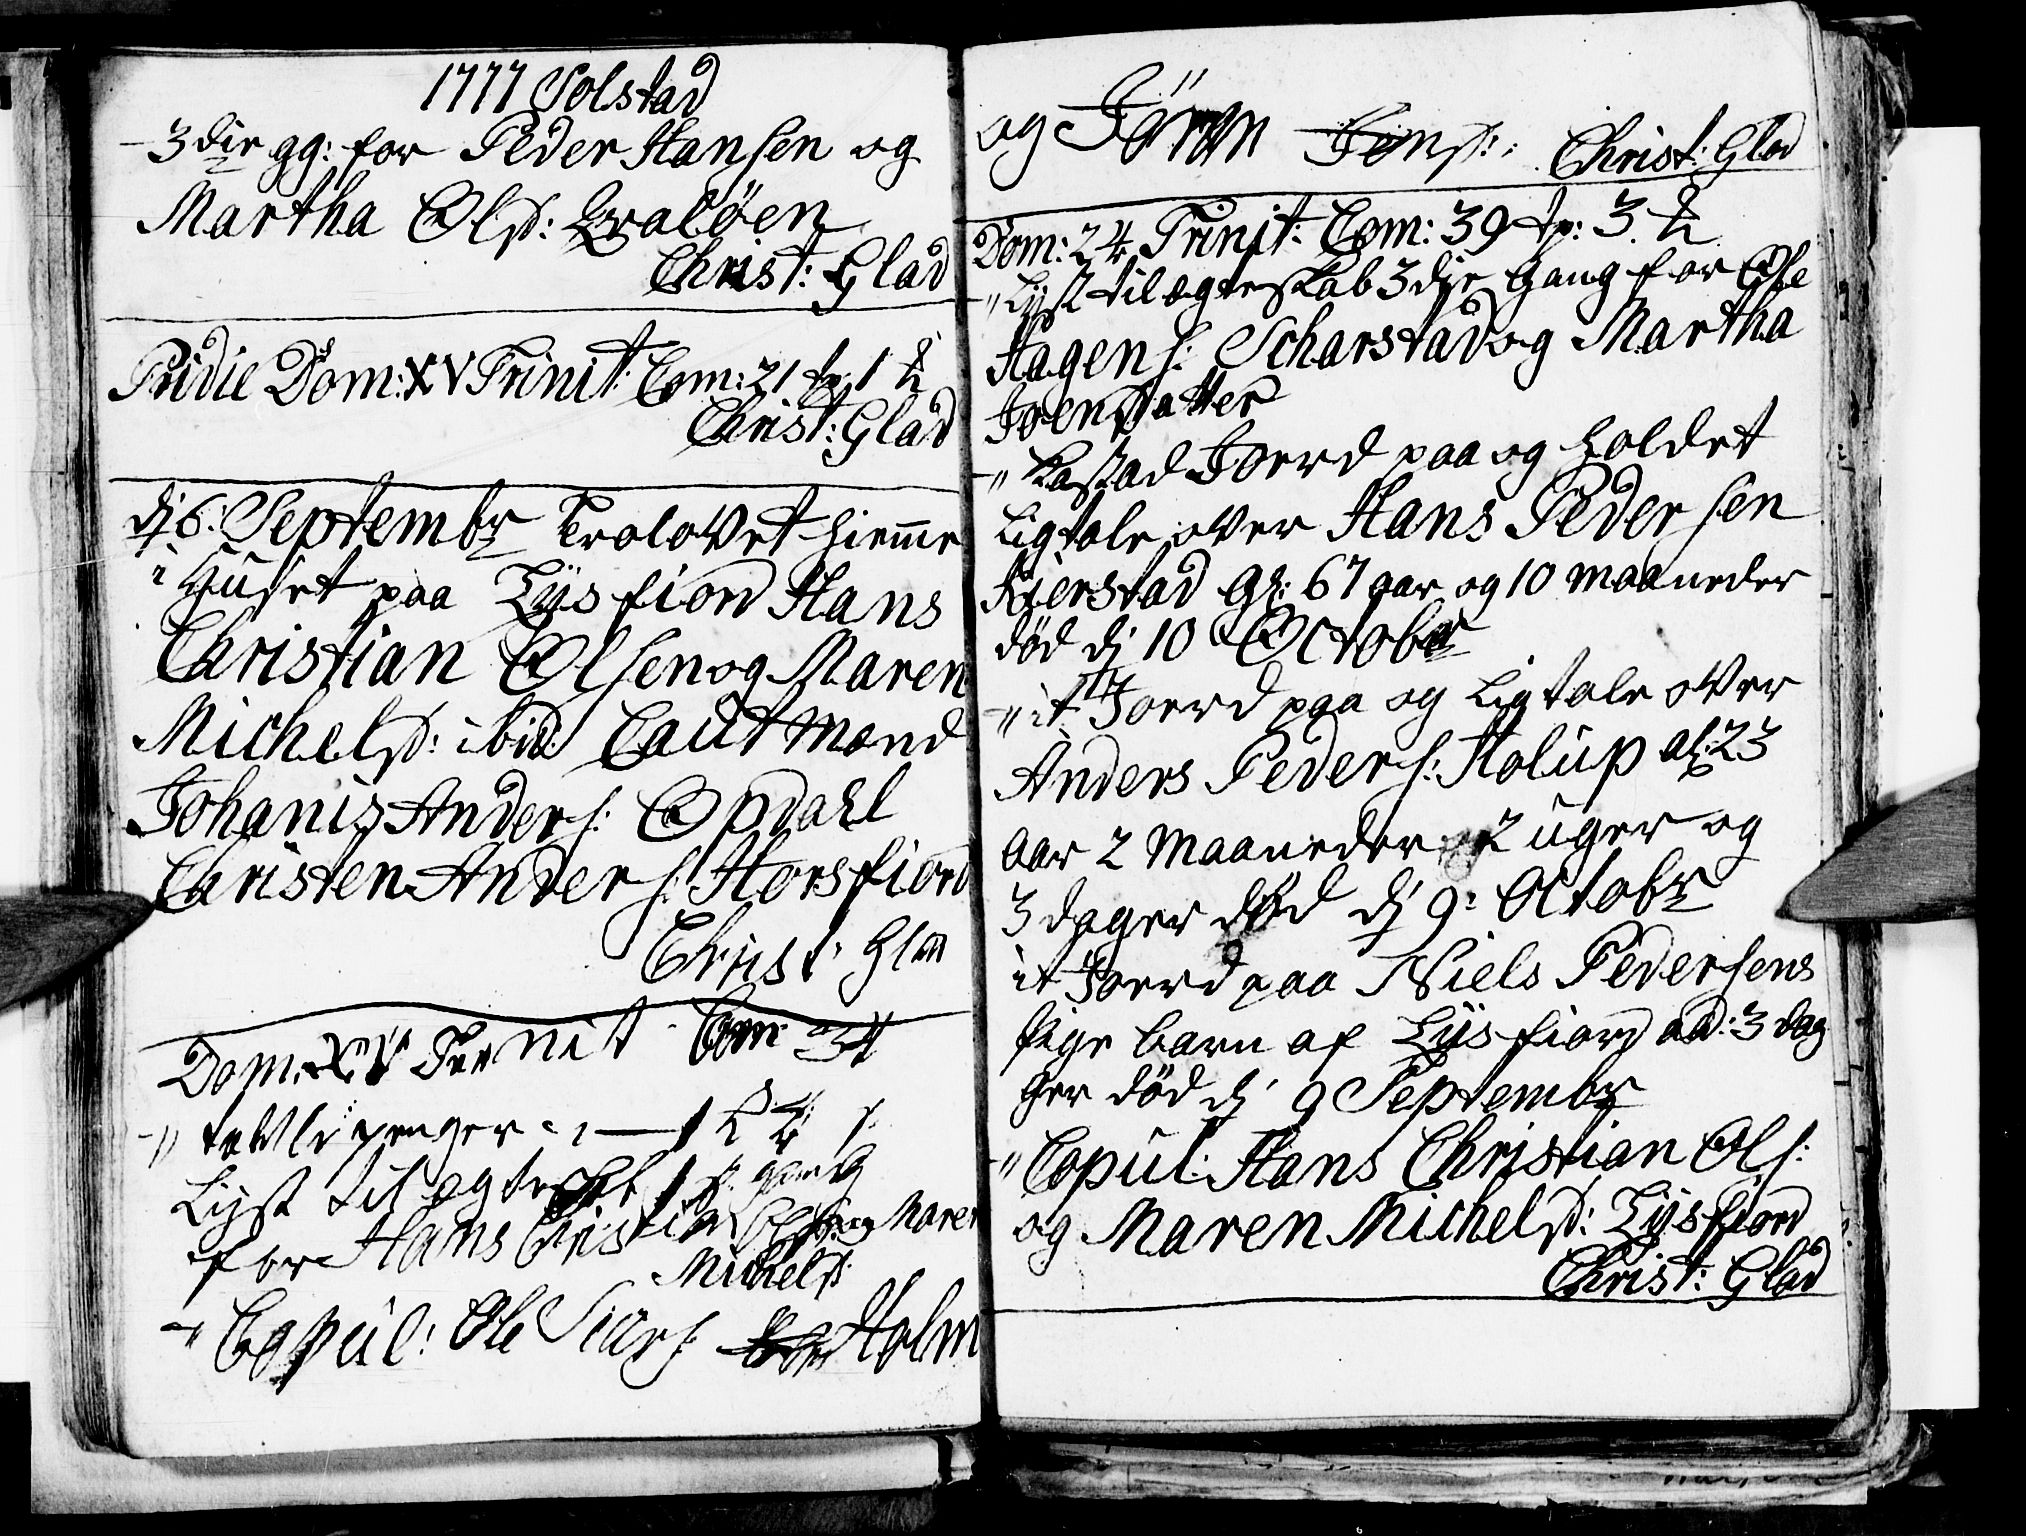 1777 Solstad
- 3die gg: for Peder Hansen og
Martha Olsd: Qvaløen
Christ: Glad
Pridie Dom: XV Trinit: Com: 21 tp: 1
Christ: Glad
dj 6: Septembr Trolovet hiemme
i Huset paa Lysfiord Hans
Christian Olsen og Maren
Michelsd: ibid: Cautmænd
Johanis Anders: Opdahl
Christen Anders: Horsfiord
Christ: Glad
Dom: XV Trinit: Com: 34
-" tavlepenger - 1
Lyst til ægtesk: 1 gang
for Hans Cristian Olsen og Maren
Michelsd:
-" Copul: Ole Siurs: Holm
og Jens: Christ: Glad
Dom: 24 Trinit: Com: 39 tp: 3
-" Lyst til ægteskab 3die Gang for Ole
Hagens: Scharstad og Martha
Joensdatter
-" Kastad Joerd paa og holdet
Ligtale over Hans Pedersen
Kierstad gl: 67 aar og 10 maaneder
død dj 10 October
-" it Joerd paa og Ligtale over
Anders Peders: Holup al: 23
aar 2 Maaneder 2 uger og
3 dager død dj 9: Octobr
it Joerd paa Niels Pedersens
Pige barn af Lysfiord ad: 3 dag
ger død dj 9 Septembr
-" Copul: Hans Christian Ols:
og Maren Michelsd: Lysfiord
Christ: Glad